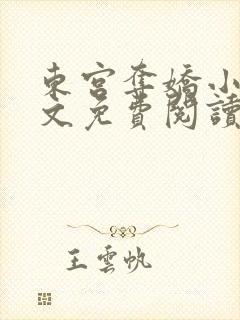 東宮奪嬌小
文免費閱讀
王雲帆